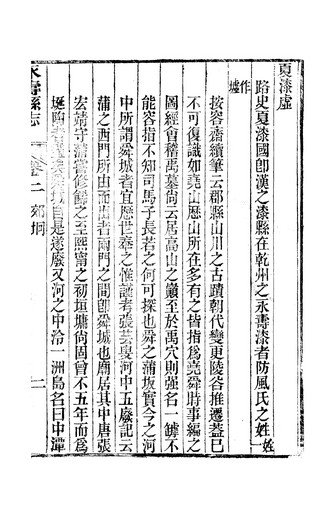 夏漆虛
路史夏漆國卽漢之漆縣在乾州之永壽漆者防風氏之姓一作墟
按容齋續筆云郡縣山川之古蹟朝代變更陵谷推遷蓋已
不可復識如堯山歷山所在多有之皆指爲堯舜時事編之
圖經會稽禹墓尙云居高山之巓至於禹穴則强名一罅不
能容指不知司馬子長若之何可探也舜之蒲坂實今之河
中所謂舜城者宜歷世奉之惟謹考張芸叟河中五廢記云
蒲之西門所由而出者兩門之間卽舜城也廟居其中唐張
宏靖守蒲嘗修飾之至熙甯之初垣墉尙固曾不五年而爲
埏陶者
自是遂廢又河之中泠一洲島名曰中潬
永壽縣志
卷二
郊坰
二